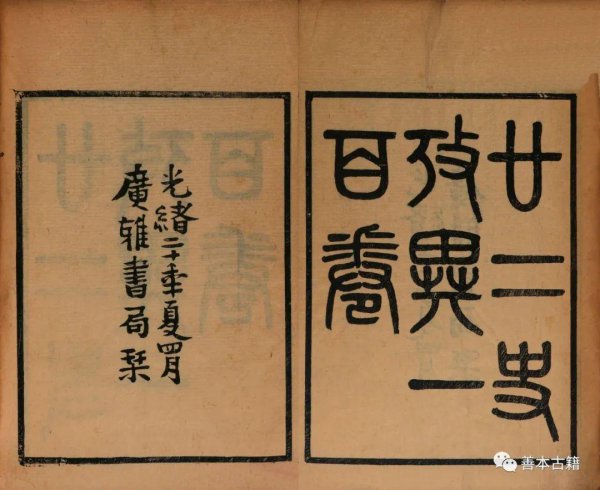 廿二史
攷異一
百卷
光緒二十年夏四月
廣雅書局栞
善本古籍